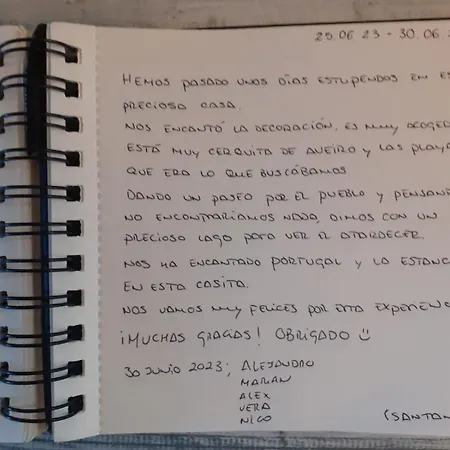 25 06 23 - 30.06
HEMOS PASADO UNOS DÍAS ESTUPENDOS EN
PRECIOSA CASA.
NOS ENCANTÓ LA DECORACIÓN, ES MUY
ESTÁ MUY CERQUITA DE AVEIRO Y LAS
QUE ERA LO QUE BUSCÁBAMOS
DANDO UN PASEO POR EL PUEBLO Y
NO ENCONTRARÍAMOS NADA, DIMOS CON UN
PRECIOSO LAGO PARA VER EL ATARDECER.
NOS HA ENCANTADO PORTUGAL Y LA
EN ESTA CASITA.
NOS VAMOS MUY FELICES POR ESTA
¡MUCHAS GRACIAS! OBRIGADO ☺
30 JUNIO 2023; ALEJANDRO
MARIAN
ALEX
VERA
NICO